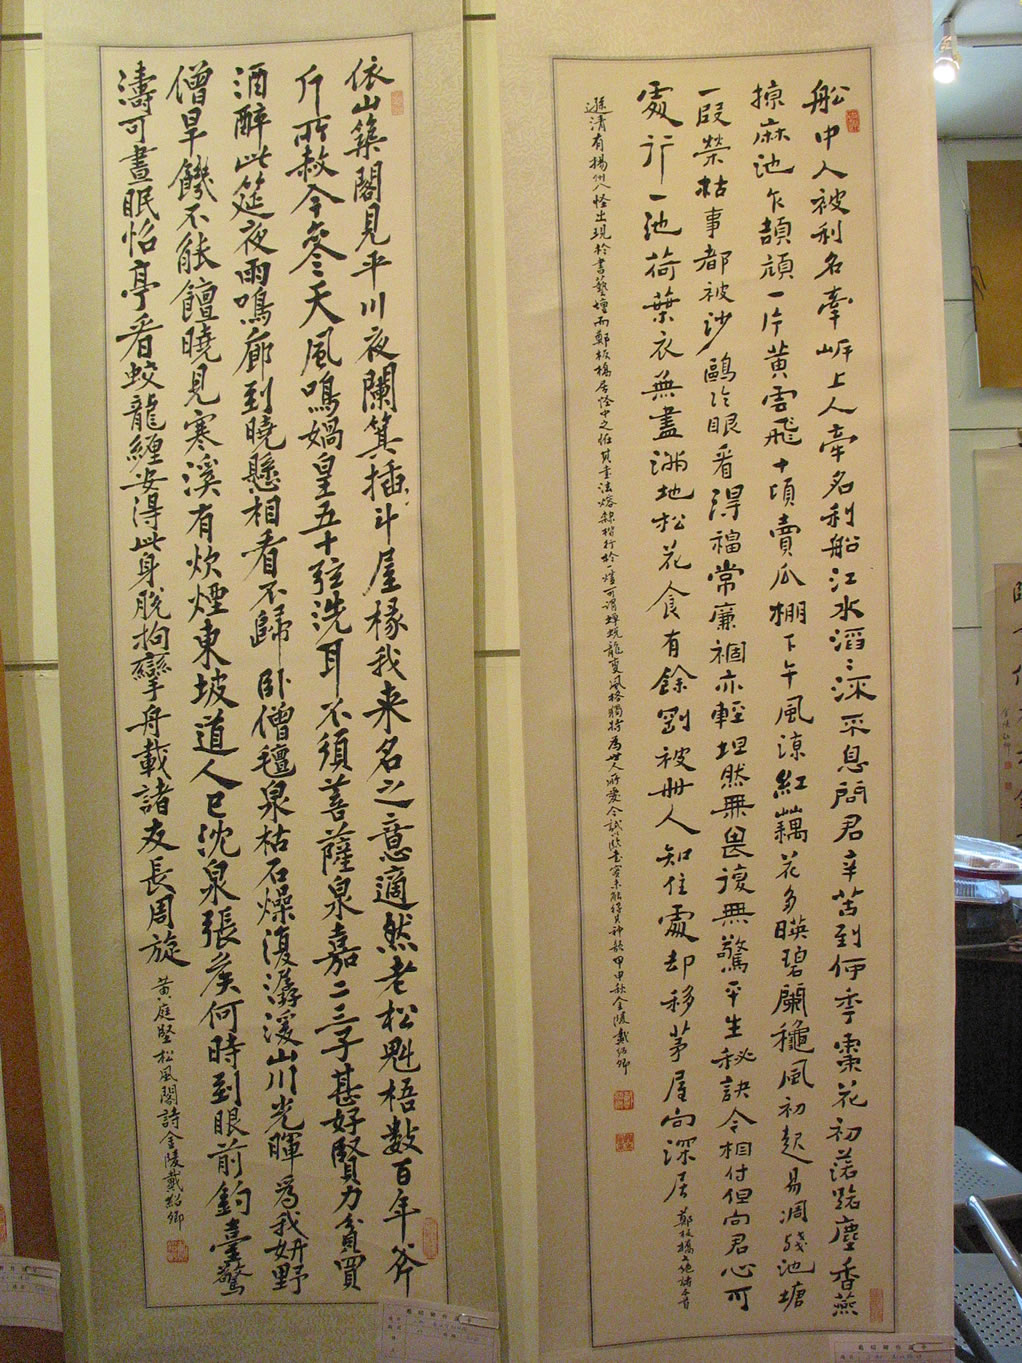 船中人被利名牽岸上人牽名利船江水滔滔流不息問君辛苦到何年棗花初落路塵香燕
掠麻池乍頡頏一片黃雲飛十頃賣瓜棚下午風涼紅藕花多映碧闌穐風初起易凋殘池塘
一段榮枯事都被沙鷗冷眼看得福常廉禍亦輕坦然無畏復無驚平生秘訣今相付但向君心可
處行一池荷葉衣無盡滿地松花食有餘剛被世人知住處却移茅屋向深居 鄭板橋
遜清有揚州八怪出現於書藝壇而鄭板橋居怪中之 其書法熔隸楷行於一爐可謂 風格獨特為世人所愛今試 甲申秋金陵戴紹卿
依山築閣見平川夜闌箕插斗屋椽我来名之意適然老松魁梧數百年斧
斤所赦今參天風鳴媧皇五十弦洗耳不須菩薩泉嘉二三子甚好賢力貧買
酒醉此筵夜雨鳴廊到曉懸相看不歸臥僧氊泉枯石燥復潺湲山川光暉為我妍野
僧旱饑不能饘曉見寒溪有炊煙東坡道人已沈泉張矦何時到眼前釣臺驚
濤可晝眠怡亭看蛟龍纏安得此身脫拘攣舟載諸友長周旋
黃庭堅松風閣詩金陵戴紹卿